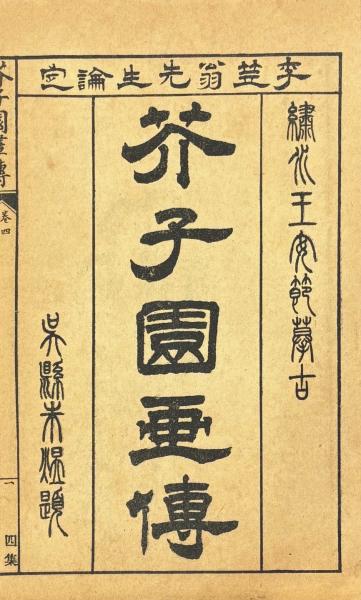 李笠翁先生論定
繡水王安節摹古
芥子園畫傳
吳縣朱煜題
芥子園畫傳
卷四
一
四集